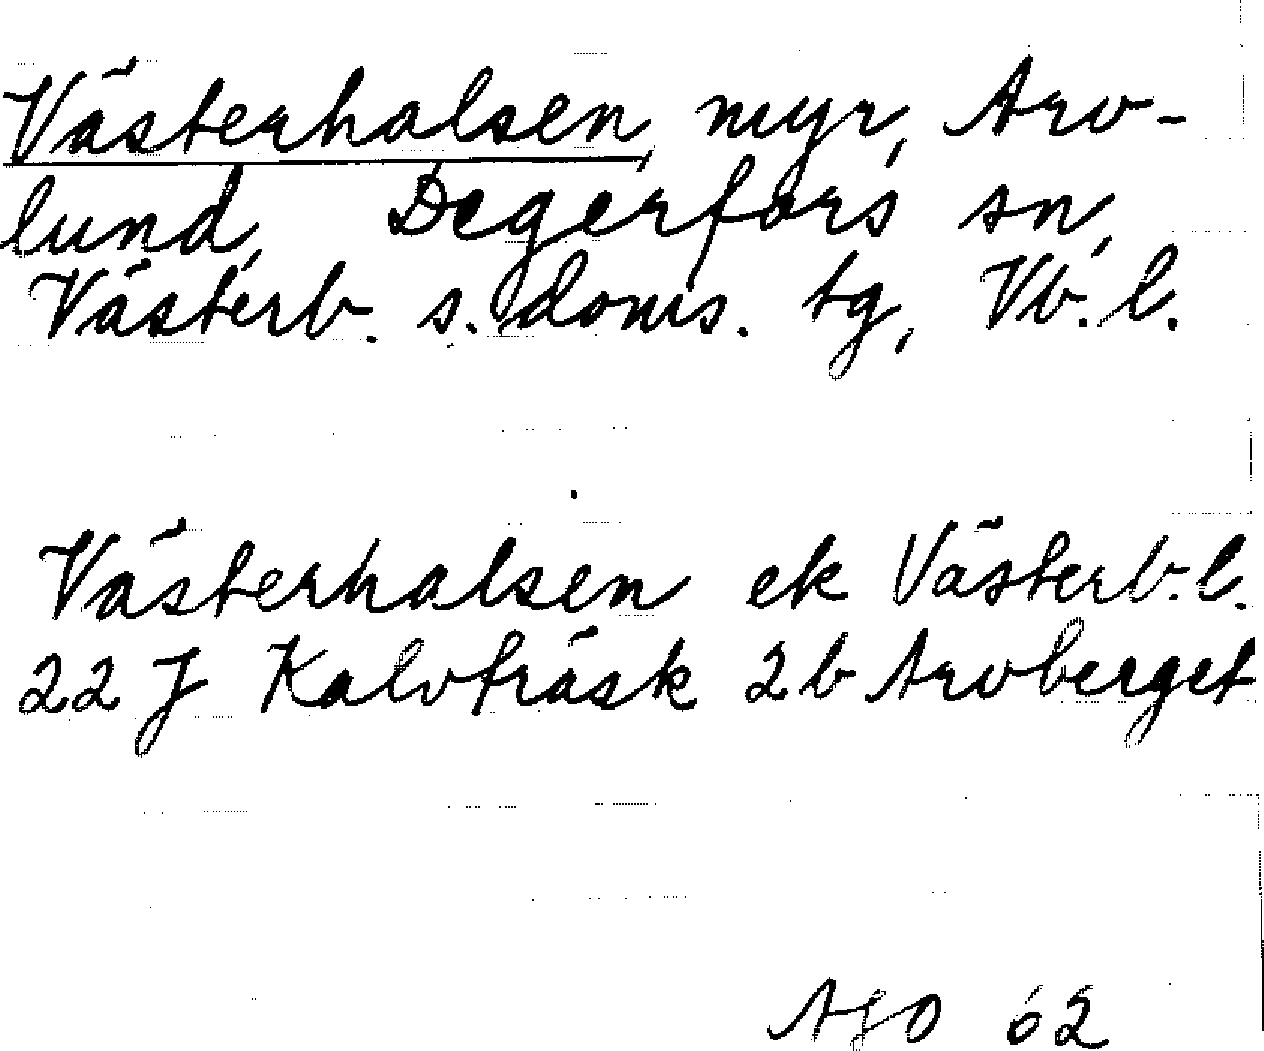 Västerhalsen, myr, Arv-
lund, Degerfors sn,
Västerb. s. doms. tg, Vb. l.
Västerhalsen ek Västerb. l.
22 J Kalvträsk 2b Arvberget
AJO 62